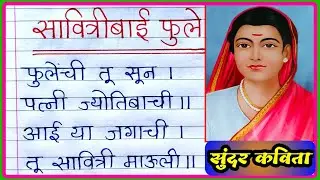 सावित्रीबाई फुले
फुलेंची तू सून ।
पत्नी ज्योतिबाची ॥
आई या जगाची ।
तू सावित्री माऊली ॥
सुंदर कविता